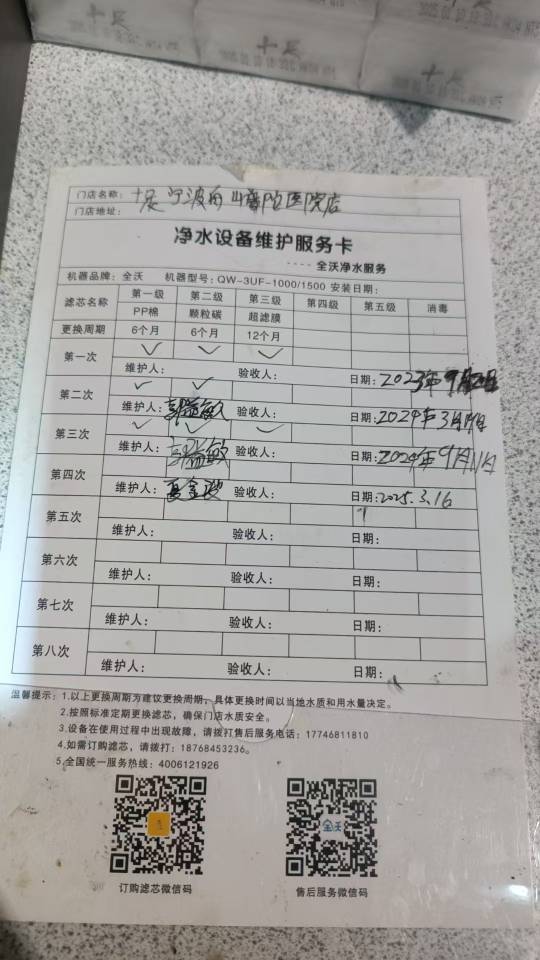 十足
十足
十足
门店名称: 十足宁波
门店地址:
净水设备维护服务卡
----全沃净水服务
机器品牌: 全沃 机器型号: QW-3UF-1000/1500 安装日期:
滤芯名称 第一级 第二级 第三级 第四级 第五级 消毒
PP棉 颗粒碳 超滤膜
更换周期 6个月 6个月 12个月
第一次 ✓ ✓ ✓
维护人: 验收人: 日期: 2023年9月
第二次 ✓ ✓
维护人: 验收人: 日期: 2024年3月
第三次 ✓ ✓ ✓
维护人: 验收人: 日期: 2024年9月11日
第四次
维护人: 验收人: 日期: 2025.3.16
第五次
维护人: 验收人: 日期:
第六次
维护人: 验收人: 日期:
第七次
维护人: 验收人: 日期:
第八次
维护人: 验收人: 日期:
温馨提示: 1.以上更换周期为建议更换周期,具体更换时间以当地水质和用水量决定。
2.按照标准定期更换滤芯,确保门店水质安全。
3.设备在使用过程中出现故障,请拨打售后服务电话: 17746811810
4.如需订购滤芯,请拨打: 18768453236。
5.全国统一服务热线: 4006121926
全沃
订购滤芯微信码 售后服务微信码